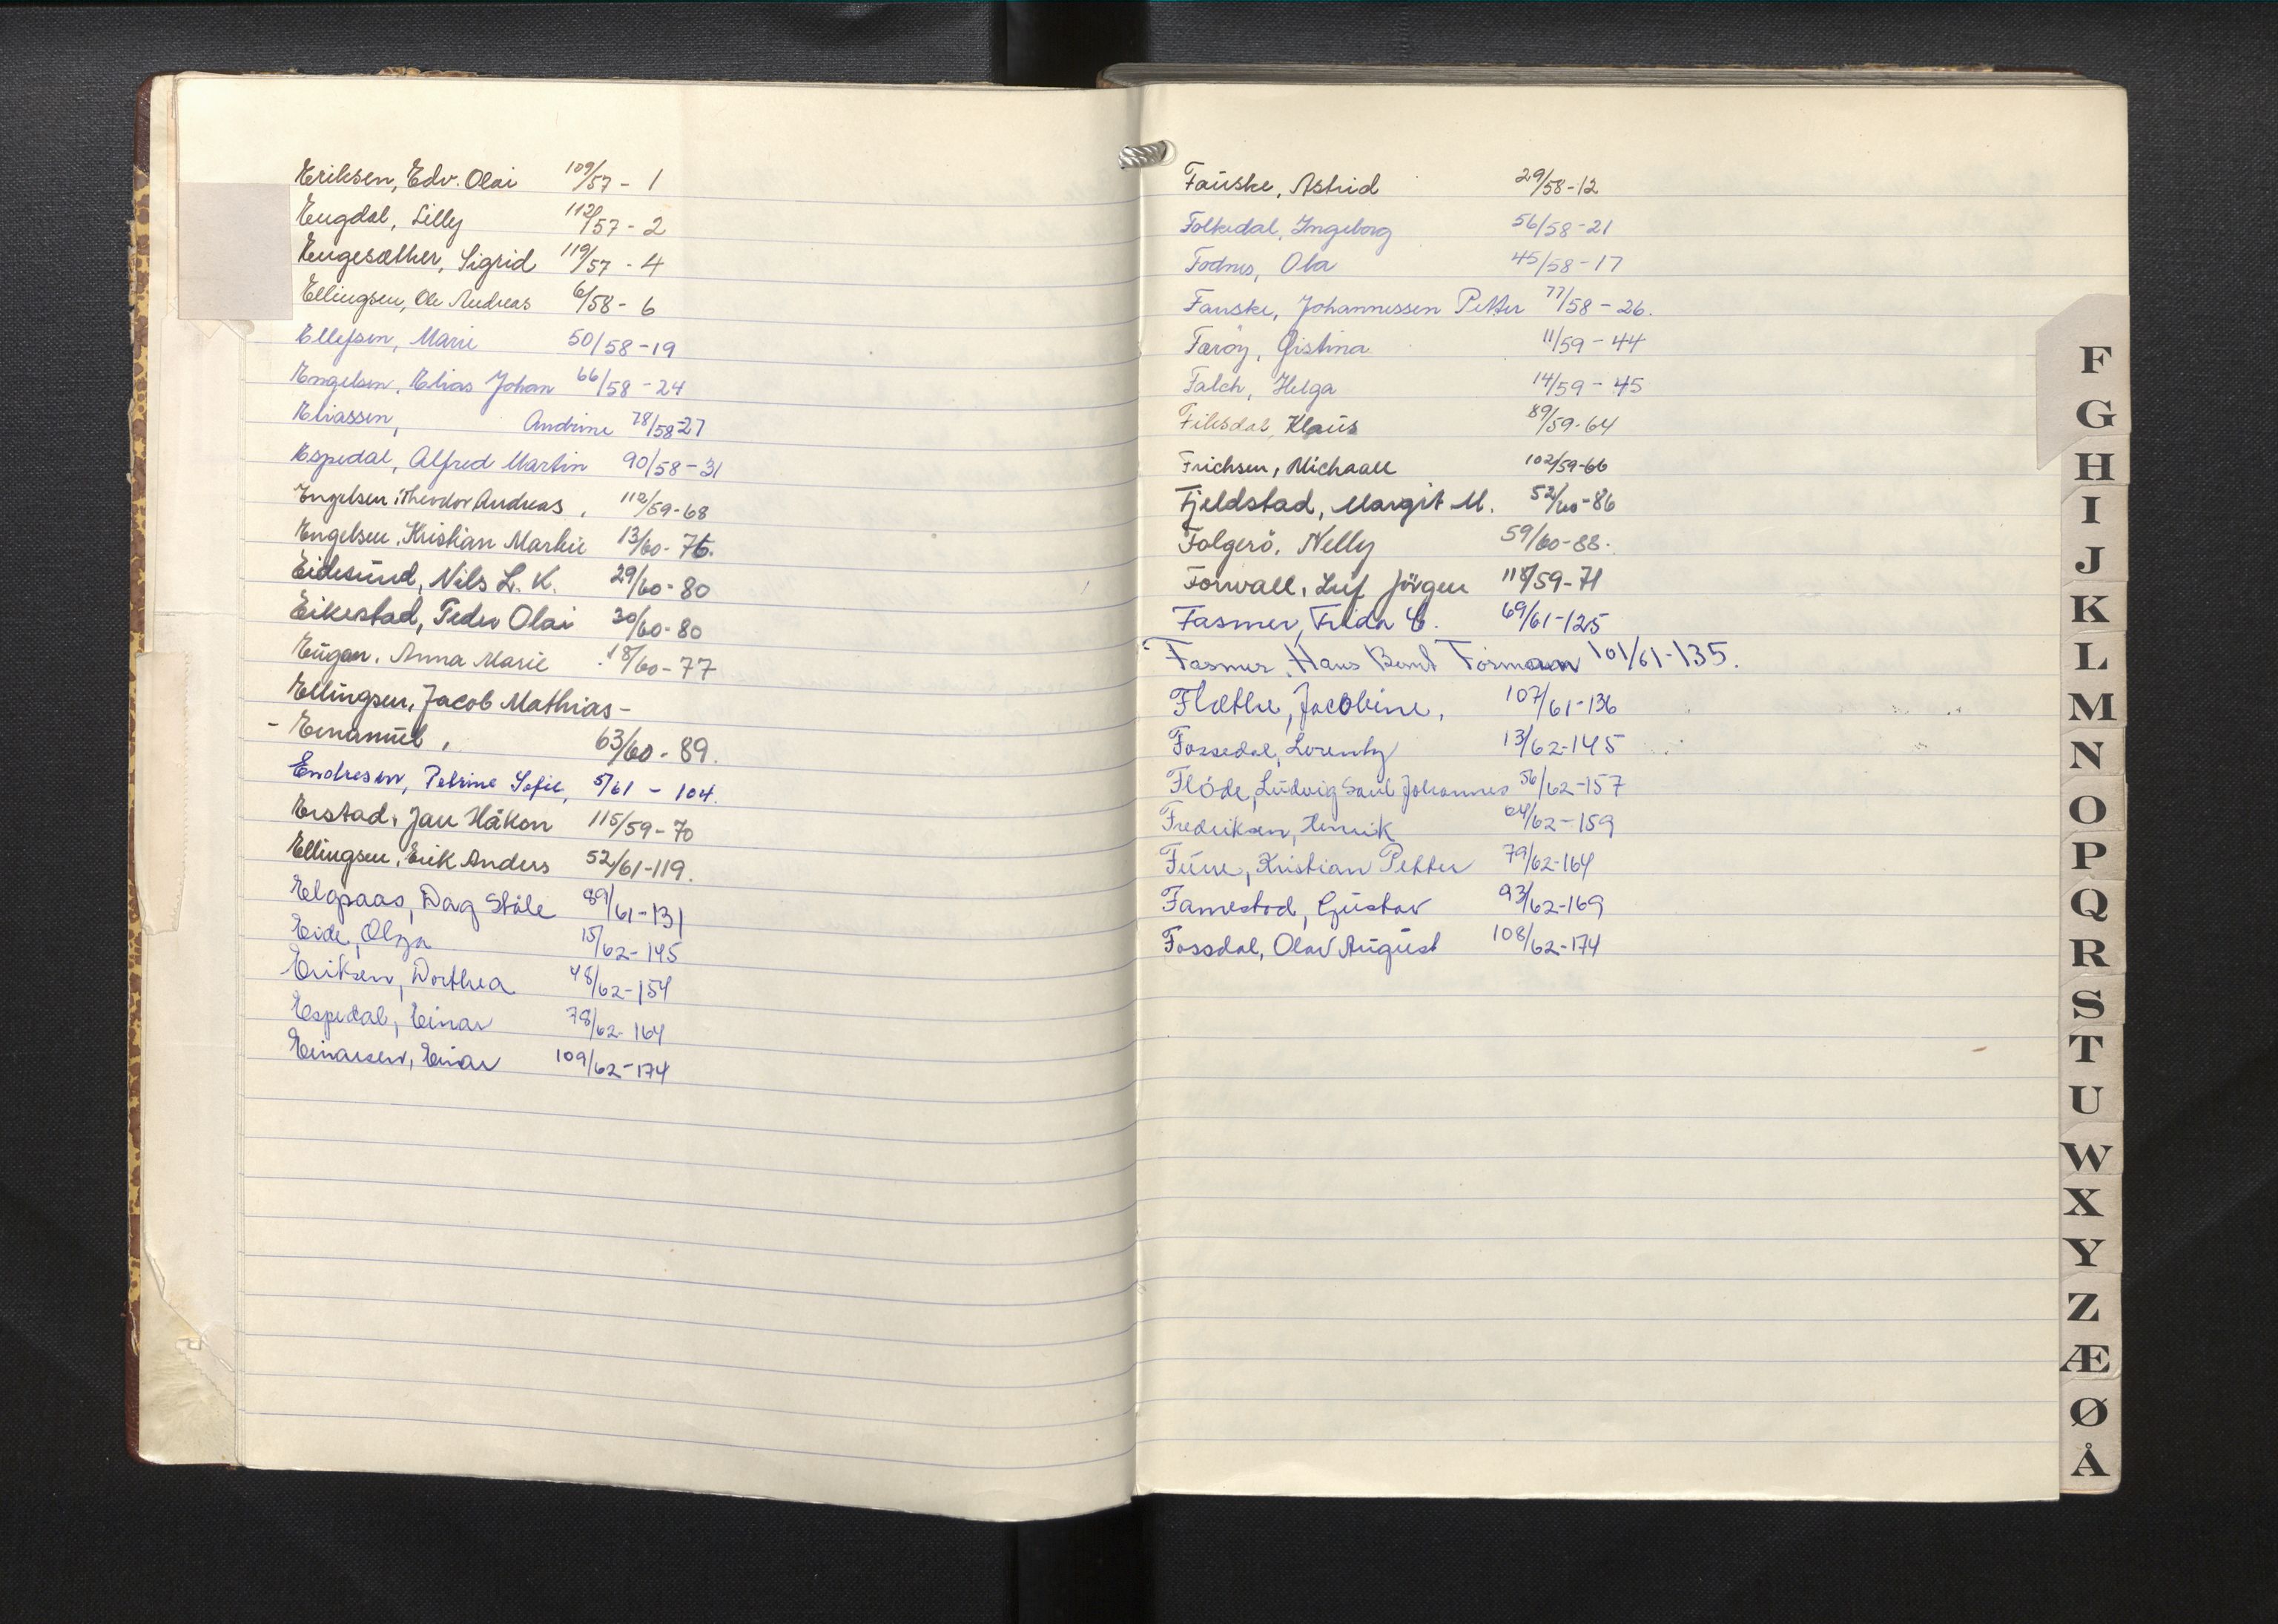 Eriksen, Edv. Olai 109/57 - 1
Engdal, Lilly 112/57 - 2
Engesæther, Sigrid 119/57 - 4
Ellingsen, Ole Andreas 6/58 - 6
Ellefsen, Marie 50/58 - 19
Engelsen, Elias Johan 66/58 - 24
Eliassen, Andrine 78/58-27
Espedal, Alfred Martin 90/58 - 31
Engelsen, Theodor Andreas, 112/59-68
Engelsen, Kristian Martin 13/60-
Eidesund, Nils L. K. 29/60-80
Eikestad, Peder Olai 30/60-80
Anna Marie 18/60-77
Ellingsen, Jacob Mathias -
- Emanuel, 63/60 - 89.
Endresen, Petrine Sofie, 5/61 - 104.
Erstad, Jan Håkon 115/59-70
Ellingsen, Erik Anders 52/61-119.
Elgsaas, Dag Ståle 89/61-131
Eide, Olga 15/62-145
Eriksen, Dorthea 48/62-154
Espedal, Einar 78/62-164
Einarsen, Einar 109/62-174
Fauske, Astrid 29/58-12
Folkedal, Ingeborg 56/58-21
Fodnes, Ola 45/58-17
Fauske, Johannessen Petter 77/58-26.
Færøy, Gistina 11/59-44
Falch, Helga 14/59-45
Fiksdal, Klaus 89/59-64
Frichsen, Michaall 102/59-66
Fjeldstad, Margit M. 52/60-86
Folgerö, Nelly 59/60-88.
Forwall, Leif Jörgen 118/59-71
Fasmer, Frida C. 69/61-125
Fasmer, Hans Bernt Formann 101/61-135.
Fløthe, Jacobine, 107/61-136
Fossedal, Lorentz 13/62-145
Flöde, Ludvig Saul Johannes 56/62-157
Fredriksen, Henrik 64/62-159
Furre, Kristian Petter 79/62-164
Famestad, Gustav 93/62-169
Fossdal, Olav August 108/62-174
F
G
H
I
J
K
L
M
N
O
P
Q
R
S
T
U
W
X
Y
Z
Æ
Ø
Å